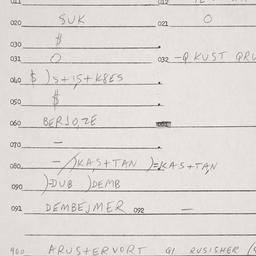 020 SUK 021 O
030 $
031 O 032 -Q KUST QRU
040 $ )S+IS+K8ES
050 $
060 BERJO,ZE
070 -
080 -/)KAS+TAN )=KAS+TAN
090 )-DUB )DEMB
091 DEMBEJMER 092 -
900 ARUS+ERVORT 91 RUSISHER